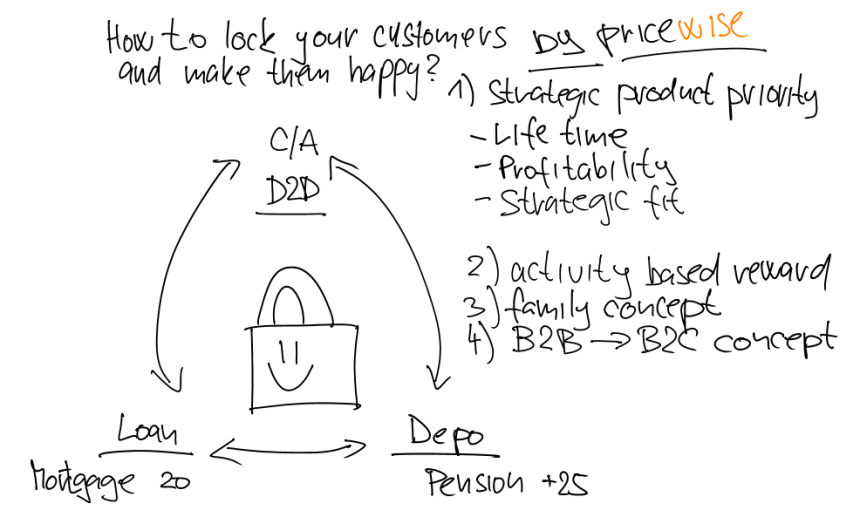 How to lock your customers by pricewise
and make them happy?
1) Strategic product priority
- Life time
- Profitability
- Strategic fit
2) activity based reward
3) family concept
4) B2B → B2C concept
C/A
D2D
Loan
Mortgage 20
Depo
Pension +25